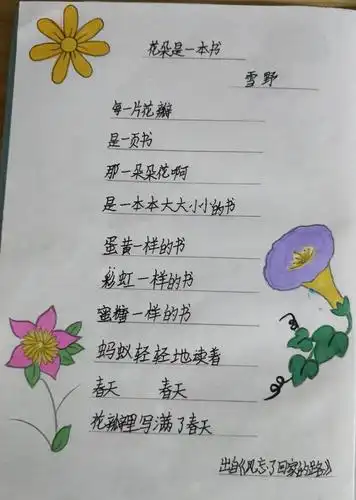 花朵是一本书
雪野
每一片花瓣
是一页书
那一朵朵花啊
是一本本大大小小的书
蛋黄一样的书
彩虹一样的书
蜜糖一样的书
蚂蚁轻轻地读着
春天 春天
花瓣里写满了春天
出自《风忘了回家的路》